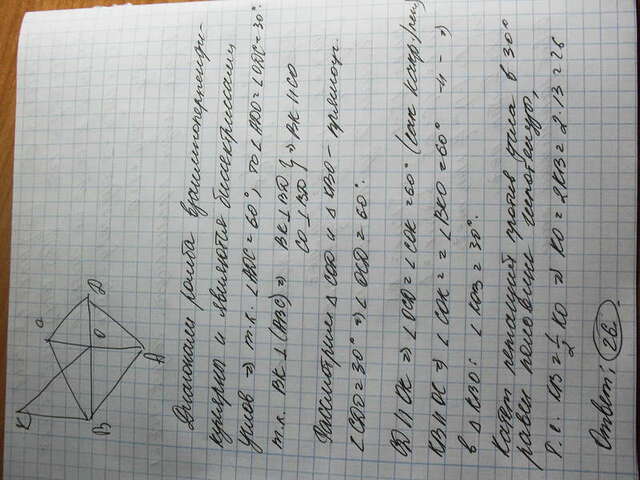 K
C
D
O
B
A
Диагонали ромба взаимноперпенди-
кулярны и являются биссектрисами
углов ⇒ т.к. ∠ADC = 60°, то ∠ADO = ∠ODC = 30°.
т.к. BK ⊥ (ABC) ⇒ BK ⊥ BD } ⇒ BK || CO
CO ⊥ BD
Рассмотрим △ COD и △ KBO - прямоуг.
∠CDO = 30° ⇒ ∠OCD = 60°.
CD || OK ⇒ ∠OCD = ∠COK = 60° (как накр/леж)
KB || OC ⇒ ∠COK = ∠BKO = 60° -"-
в △ KBO: ∠KOB = 30°.
Катет лежащий против угла в 30°
равен половине гипотенузы,
т.е. KB = 1/2 KO ⇒ KO = 2KB = 2·13 = 26
Ответ: 26.